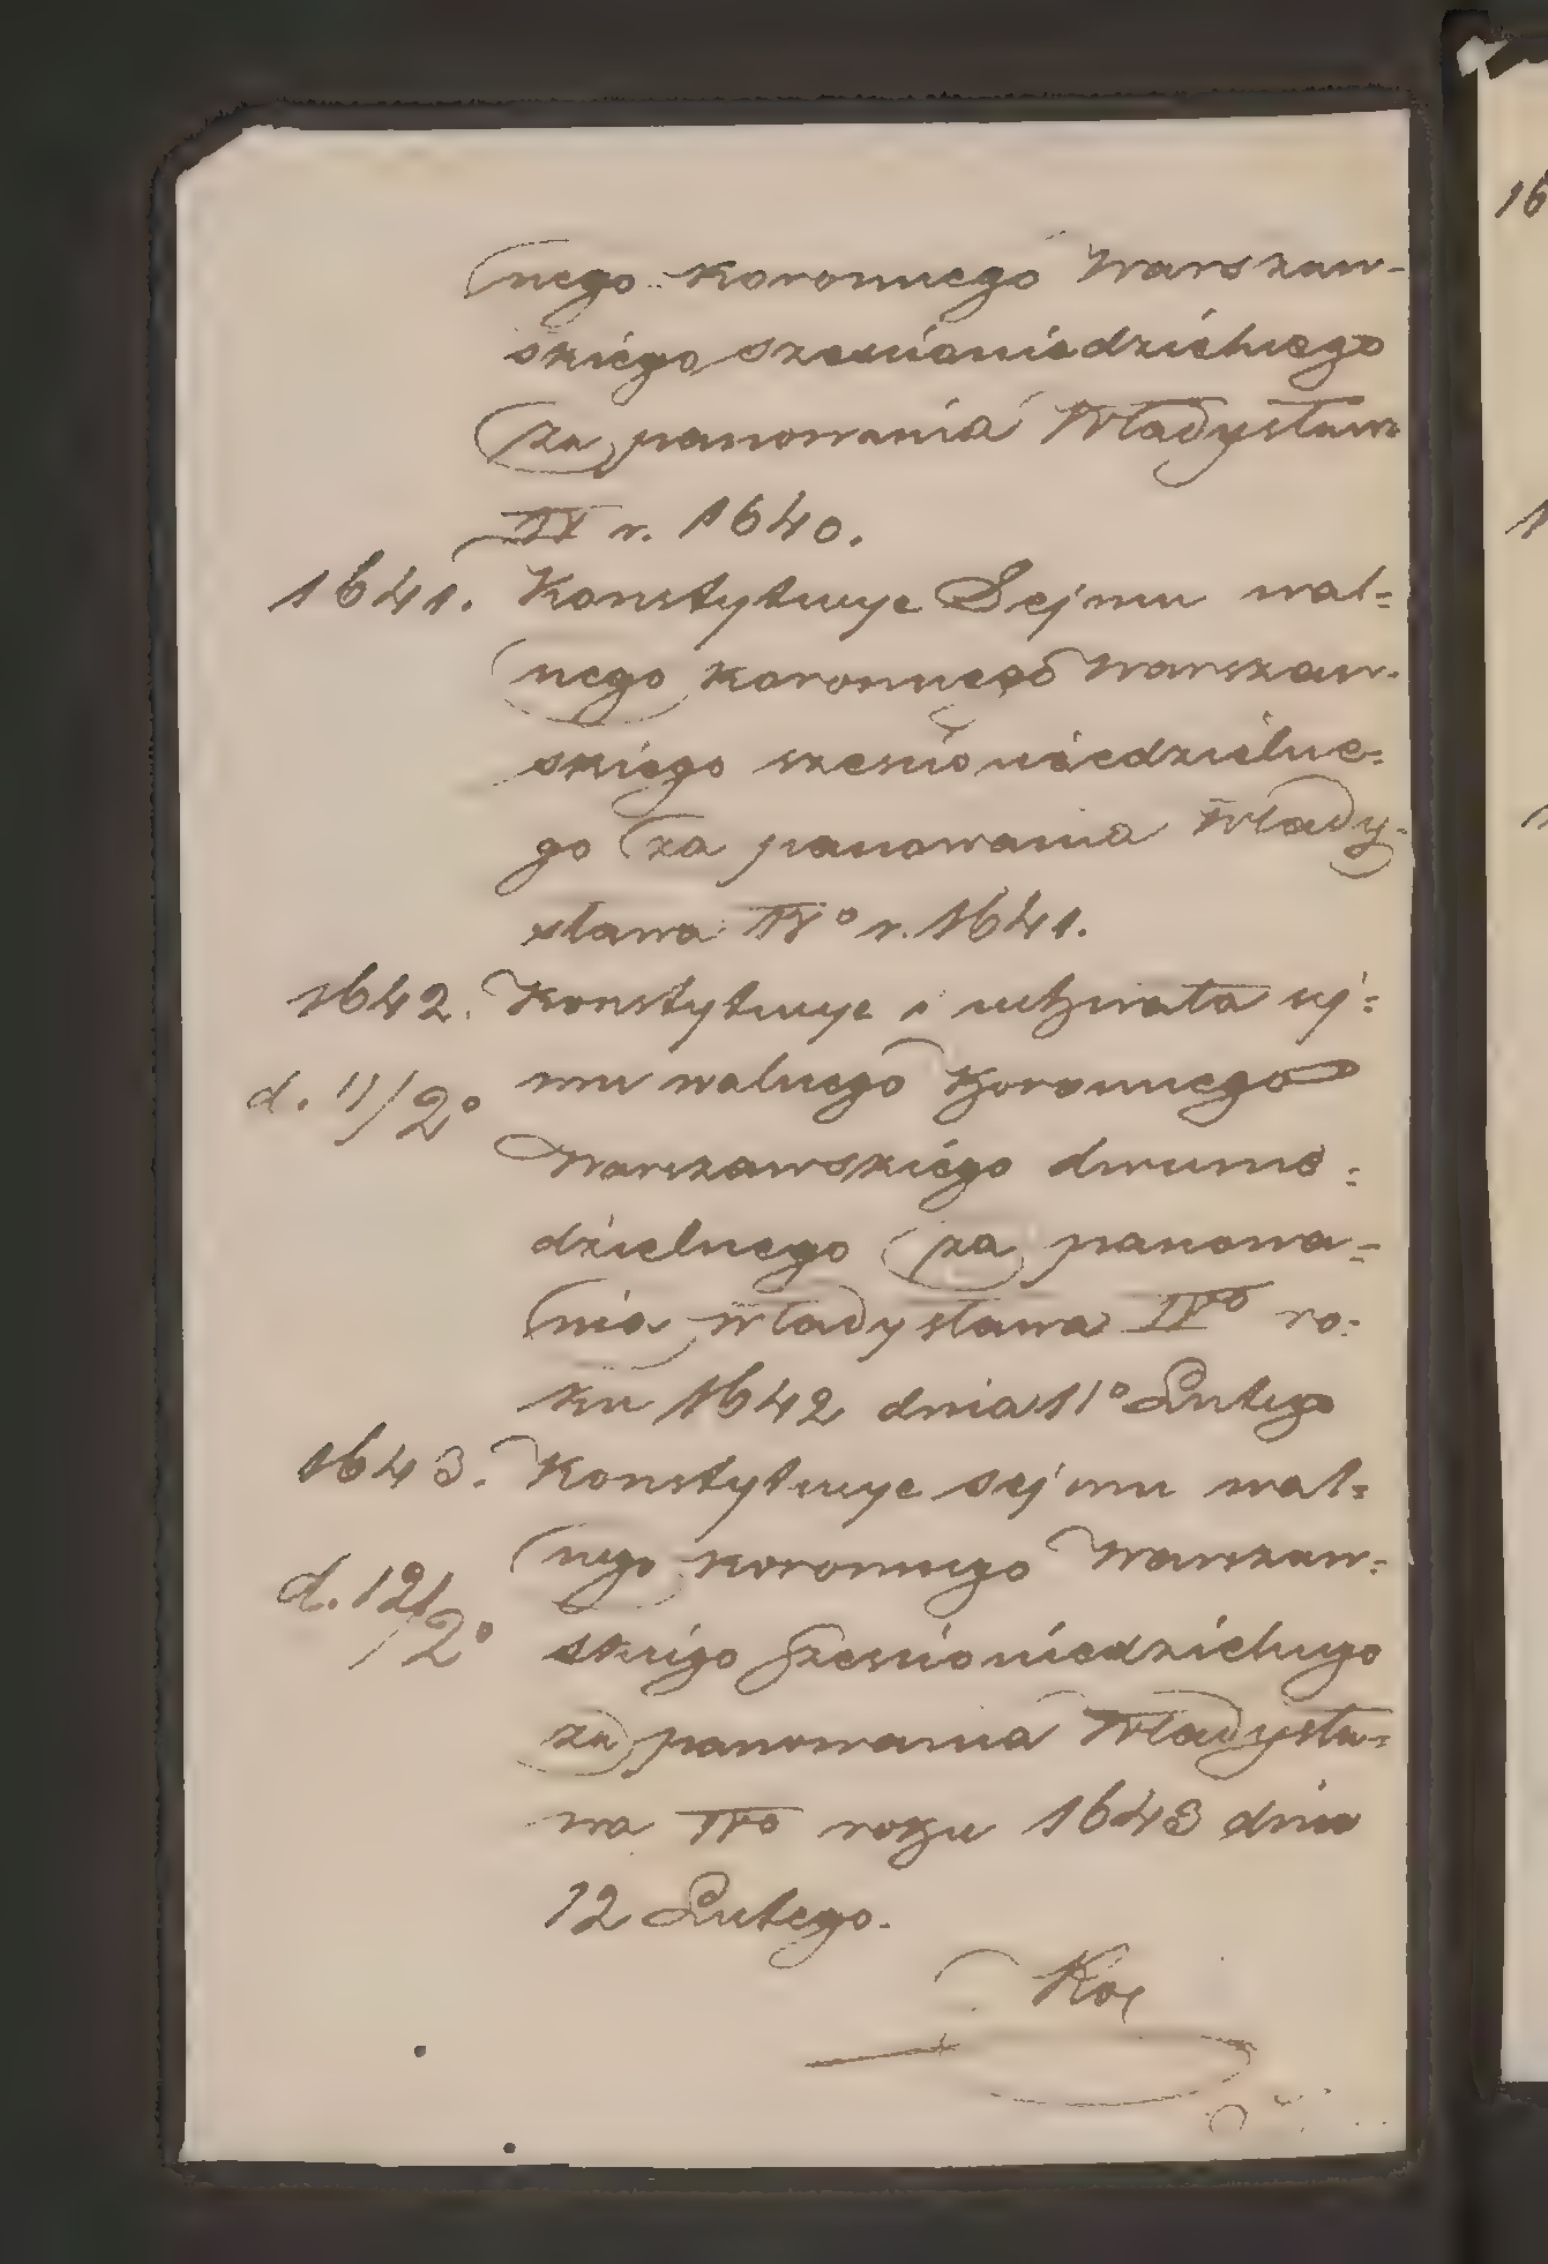 nego koronnego Warszaw-
skiego szescioniedzielnego
za panowania Władysława
IV r. 1640.
1641. Konstytucye Sejmu wal=
nego koronnego Warszaw-
skiego szescio niedzielne=
go za panowania Włady-
sława IVº r. 1641.
1642. Konstytucye i uchwała sej=
d. 11/2º mu walnego Koronnego
Warszawskiego dwunie=
dzielnego za panowa=
nia Władysława IVº ro=
ku 1642 dnia 11º Lutego
1643. Konstytucye sejmu wal=
nego koronnego Warszaw=
d. 12/2º skiego szescioniedzielnego
za panowania Władysła=
wa IVº roku 1643 dnia
12 Lutego.